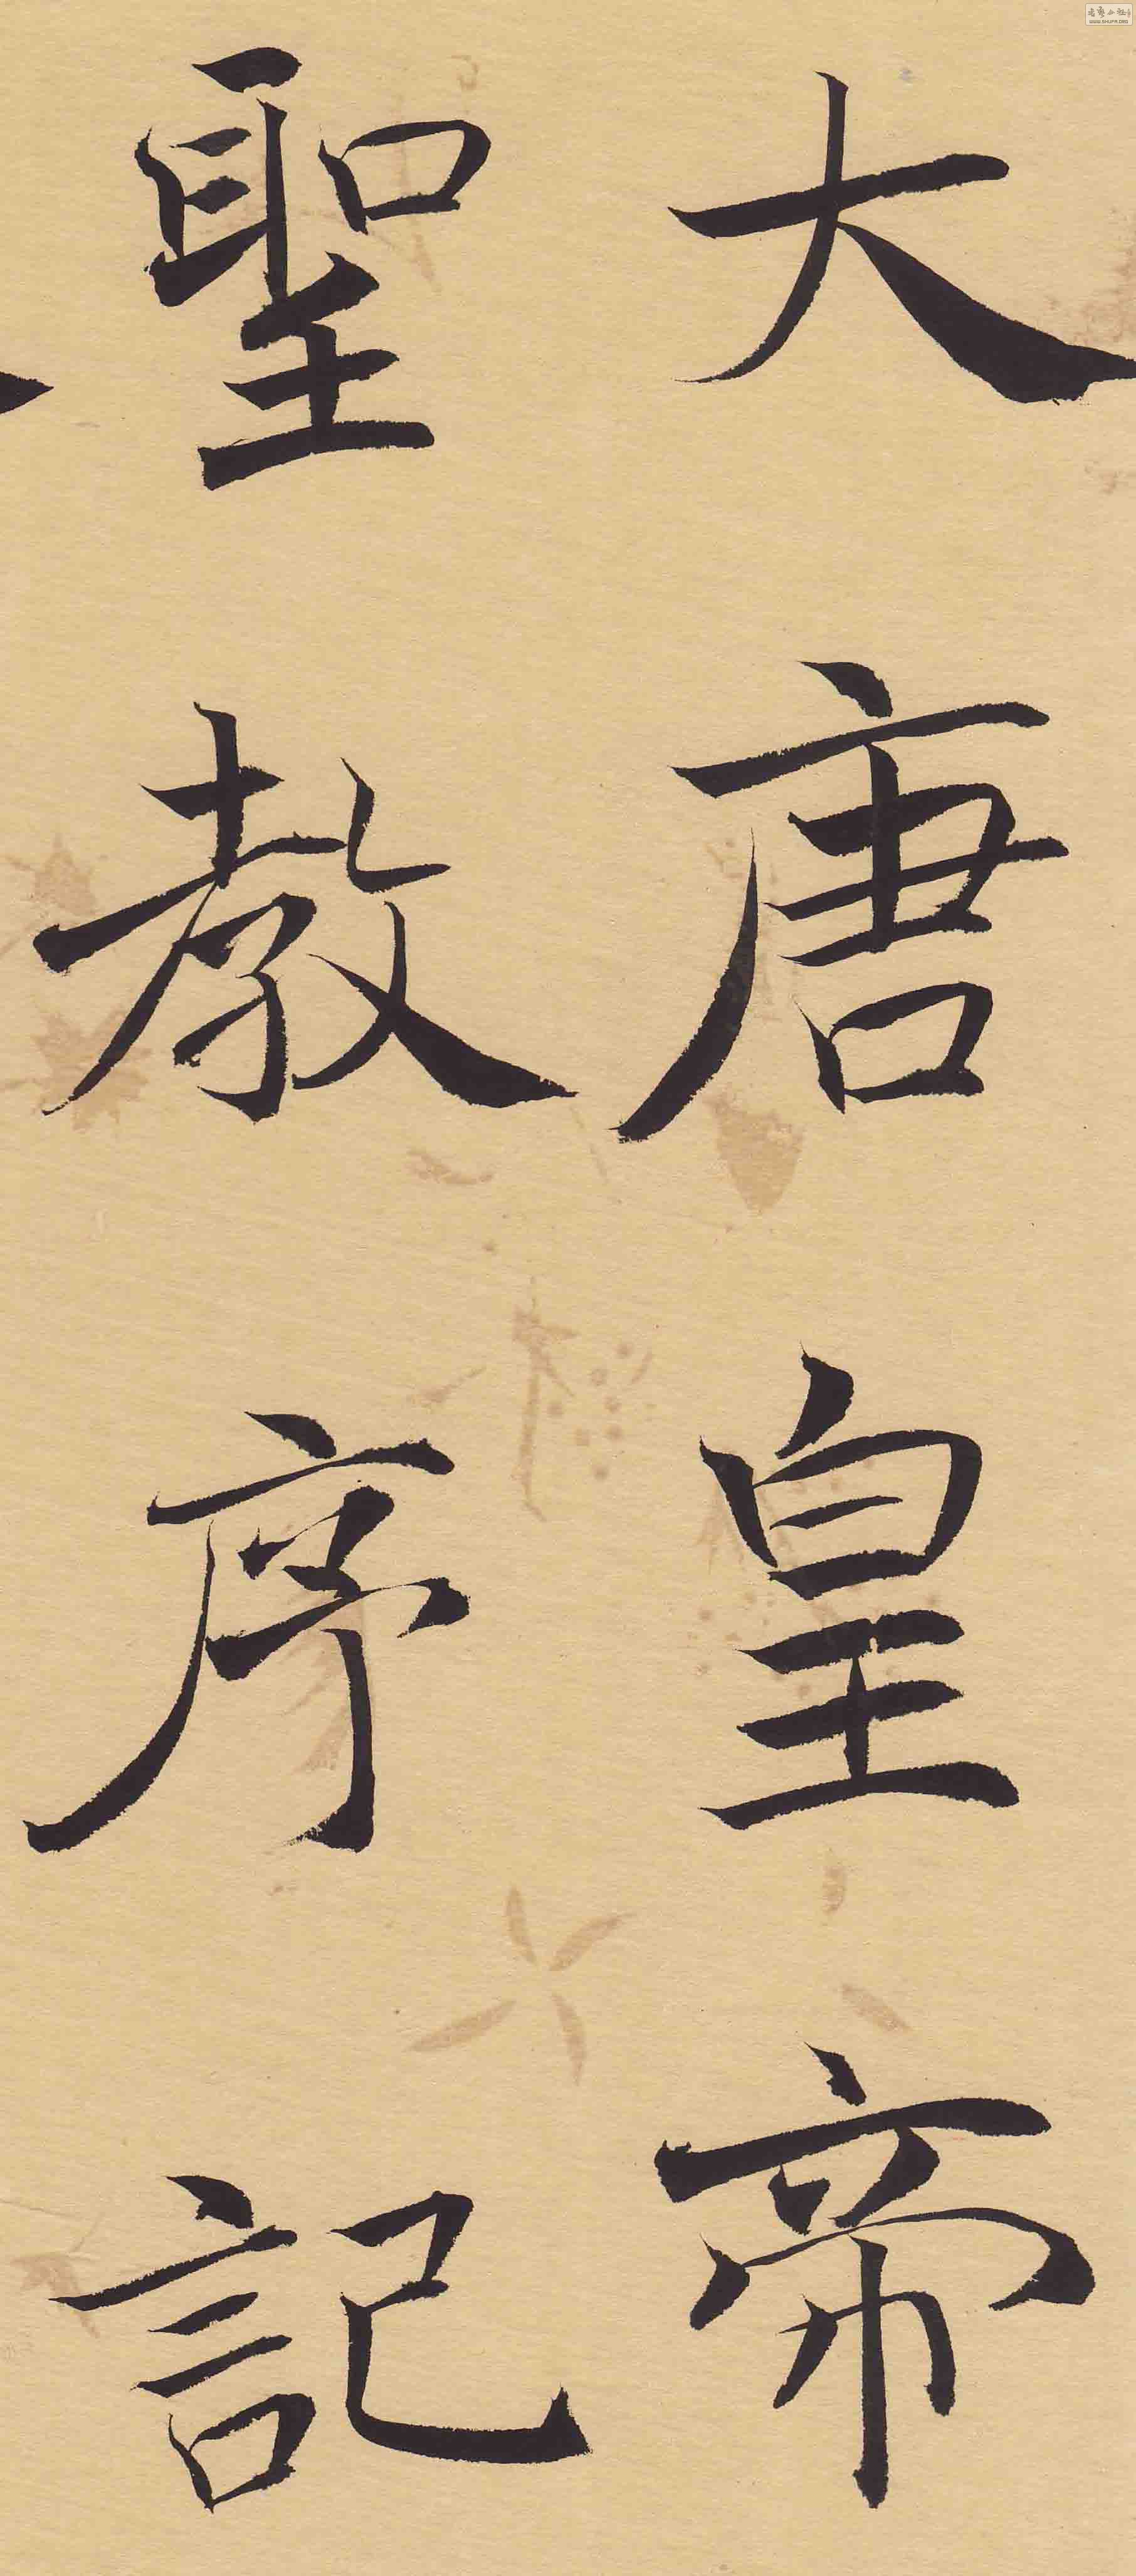 大唐皇帝
聖教序記